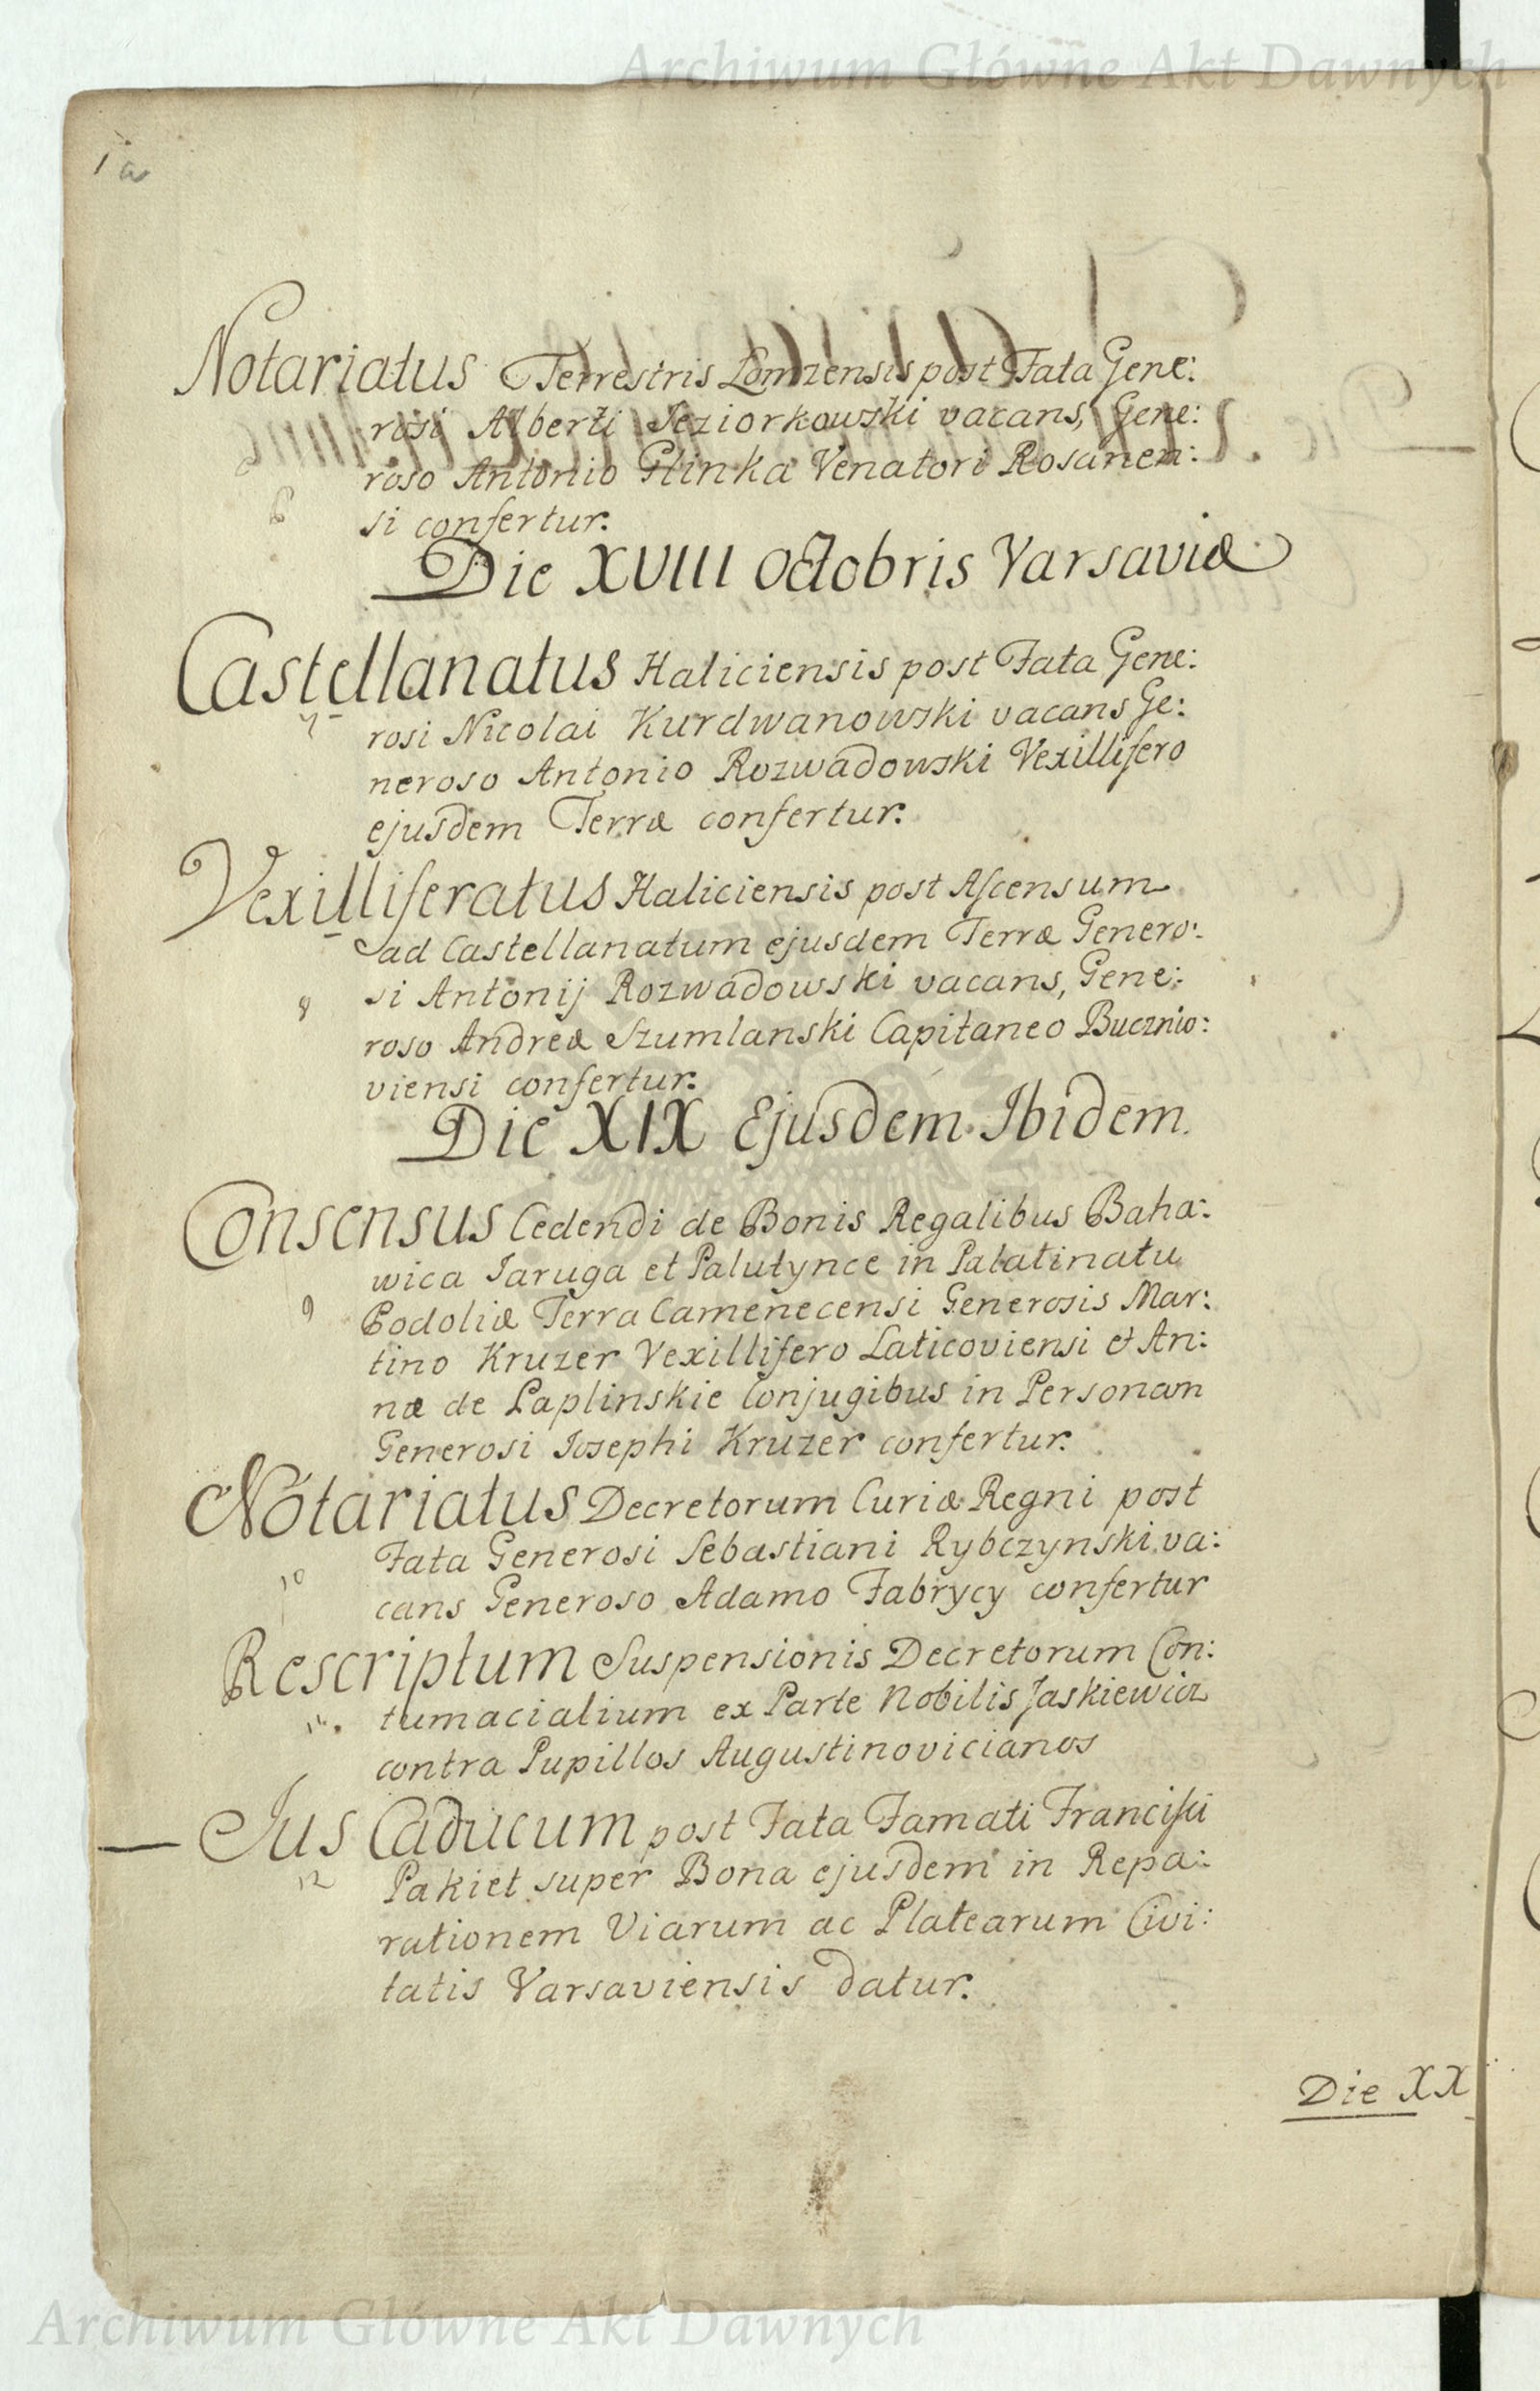 Archiwum Główne Akt Dawnych
1 a
Notariatus Terrestris Lomzensis post Fata Gene:
rosi Alberti Jeziorkowski vacans, Gene:
roso Antonio Glinka Venatori Rosanen:
6
si confertur.
Die XVIII Octobris Varsaviæ
Castellanatus Haliciensis post Fata Gene:
7
rosi Nicolai Kurdwanowski vacans Ge:
neroso Antonio Rozwadowski Vexillifero
ejusdem Terræ confertur.
Vexilliferatus Haliciensis post Ascensum
ad Castellanatum ejusdem Terræ Genero:
8
si Antonij Rozwadowski vacans, Gene:
roso Andreæ Szumlanski Capitaneo Bucznio:
viensi confertur.
Die XIX Ejusdem Ibidem.
Consensus Cedendi de Bonis Regalibus Baha:
wica Jaruga et Palutynce in Palatinatu
9
Podoliæ Terra Camenecensi Generosis Mar:
tino Kruzer Vexillifero Laticoviensi et An:
næ de Laplinskie Conjugibus in Personam
Generosi Josephi Kruzer confertur.
Notariatus Decretorum Curiæ Regni post
Fata Generosi Sebastiani Rybczynski va:
10
cans Generoso Adamo Fabrycy confertur
Rescriptum Suspensionis Decretorum Con:
11.
tumacialium ex Parte Nobilis Jaskiewicz
contra Pupillos Augustinovicianos
Jus Caducum post Fata Famati Francisci
12
Pakiet super Bona ejusdem in Repa:
rationem Viarum ac Platearum Civi:
tatis Varsaviensis datur.
Die XX
Archiwum Główne Akt Dawnych